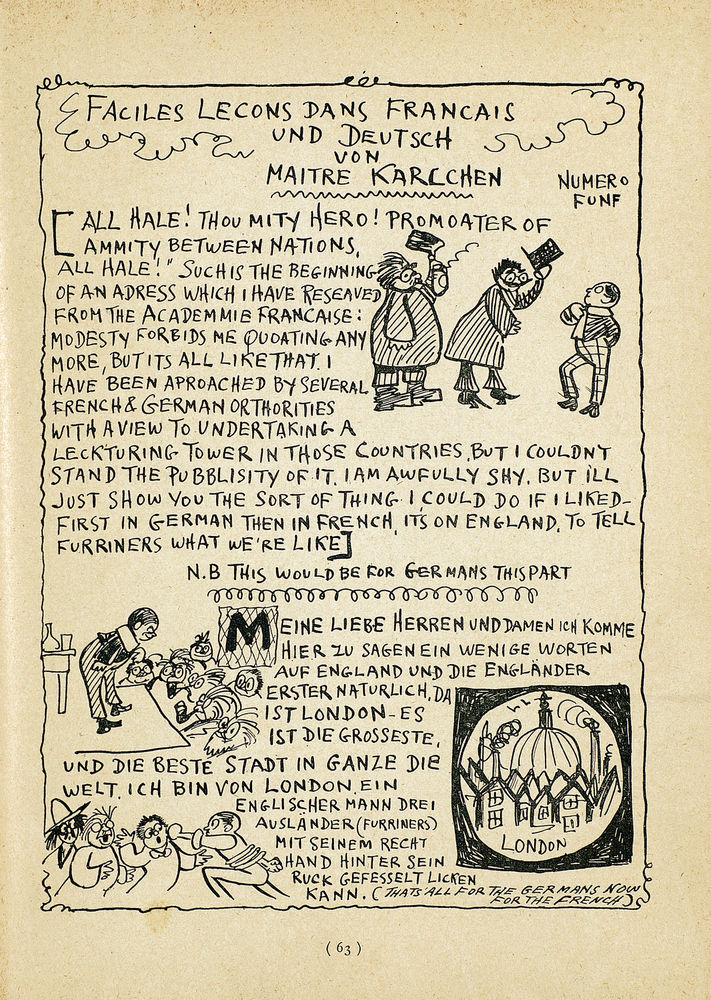 FACILES LECONS DANS FRANCAIS
UND DEUTSCH
VON
MAITRE KARLCHEN
NUMERO
FUNF
[ALL HALE! THOU MITY HERO! PROMOATER OF
AMMITY BETWEEN NATIONS,
ALL HALE!" SUCH IS THE BEGINNING
OF AN ADRESS WHICH I HAVE RESEAVED
FROM THE ACADEMMIE FRANCAISE:
MODESTY FORBIDS ME QUOATING ANY
MORE, BUT ITS ALL LIKE THAT. I
HAVE BEEN APROACHED BY SEVERAL
FRENCH & GERMAN ORTHORITIES
WITH A VIEW TO UNDERTAKING A
LECKTURING TOWER IN THOSE COUNTRIES, BUT I COULDNT
STAND THE PUBBLISITY OF IT. I AM AWFULLY SHY. BUT I'LL
JUST SHOW YOU THE SORT OF THING I COULD DO IF I LIKED_
FIRST IN GERMAN THEN IN FRENCH, IT'S ON ENGLAND, TO TELL
FURRINERS WHAT WE'RE LIKE]
N.B THIS WOULD BE FOR GERMANS THIS PART
MEINE LIEBE HERREN UND DAMEN ICH KOMME
HIER ZU SAGEN EIN WENIGE WORTEN
AUF ENGLAND UND DIE ENGLÄNDER
ERSTER NATURLICH, DA
IST LONDON - ES
IST DIE GROSSESTE,
UND DIE BESTE STADT IN GANZE DIE
WELT. ICH BIN VON LONDON. EIN
ENGLISCHER MANN DREI
AUSLÄNDER (FURRINERS)
MIT SEINEM RECHT
HAND HINTER SEIN
RUCK GEFESSELT LICKEN
KANN. (THATS ALL FOR THE GERMANS NOW
FOR THE FRENCH)
LONDON
(63)